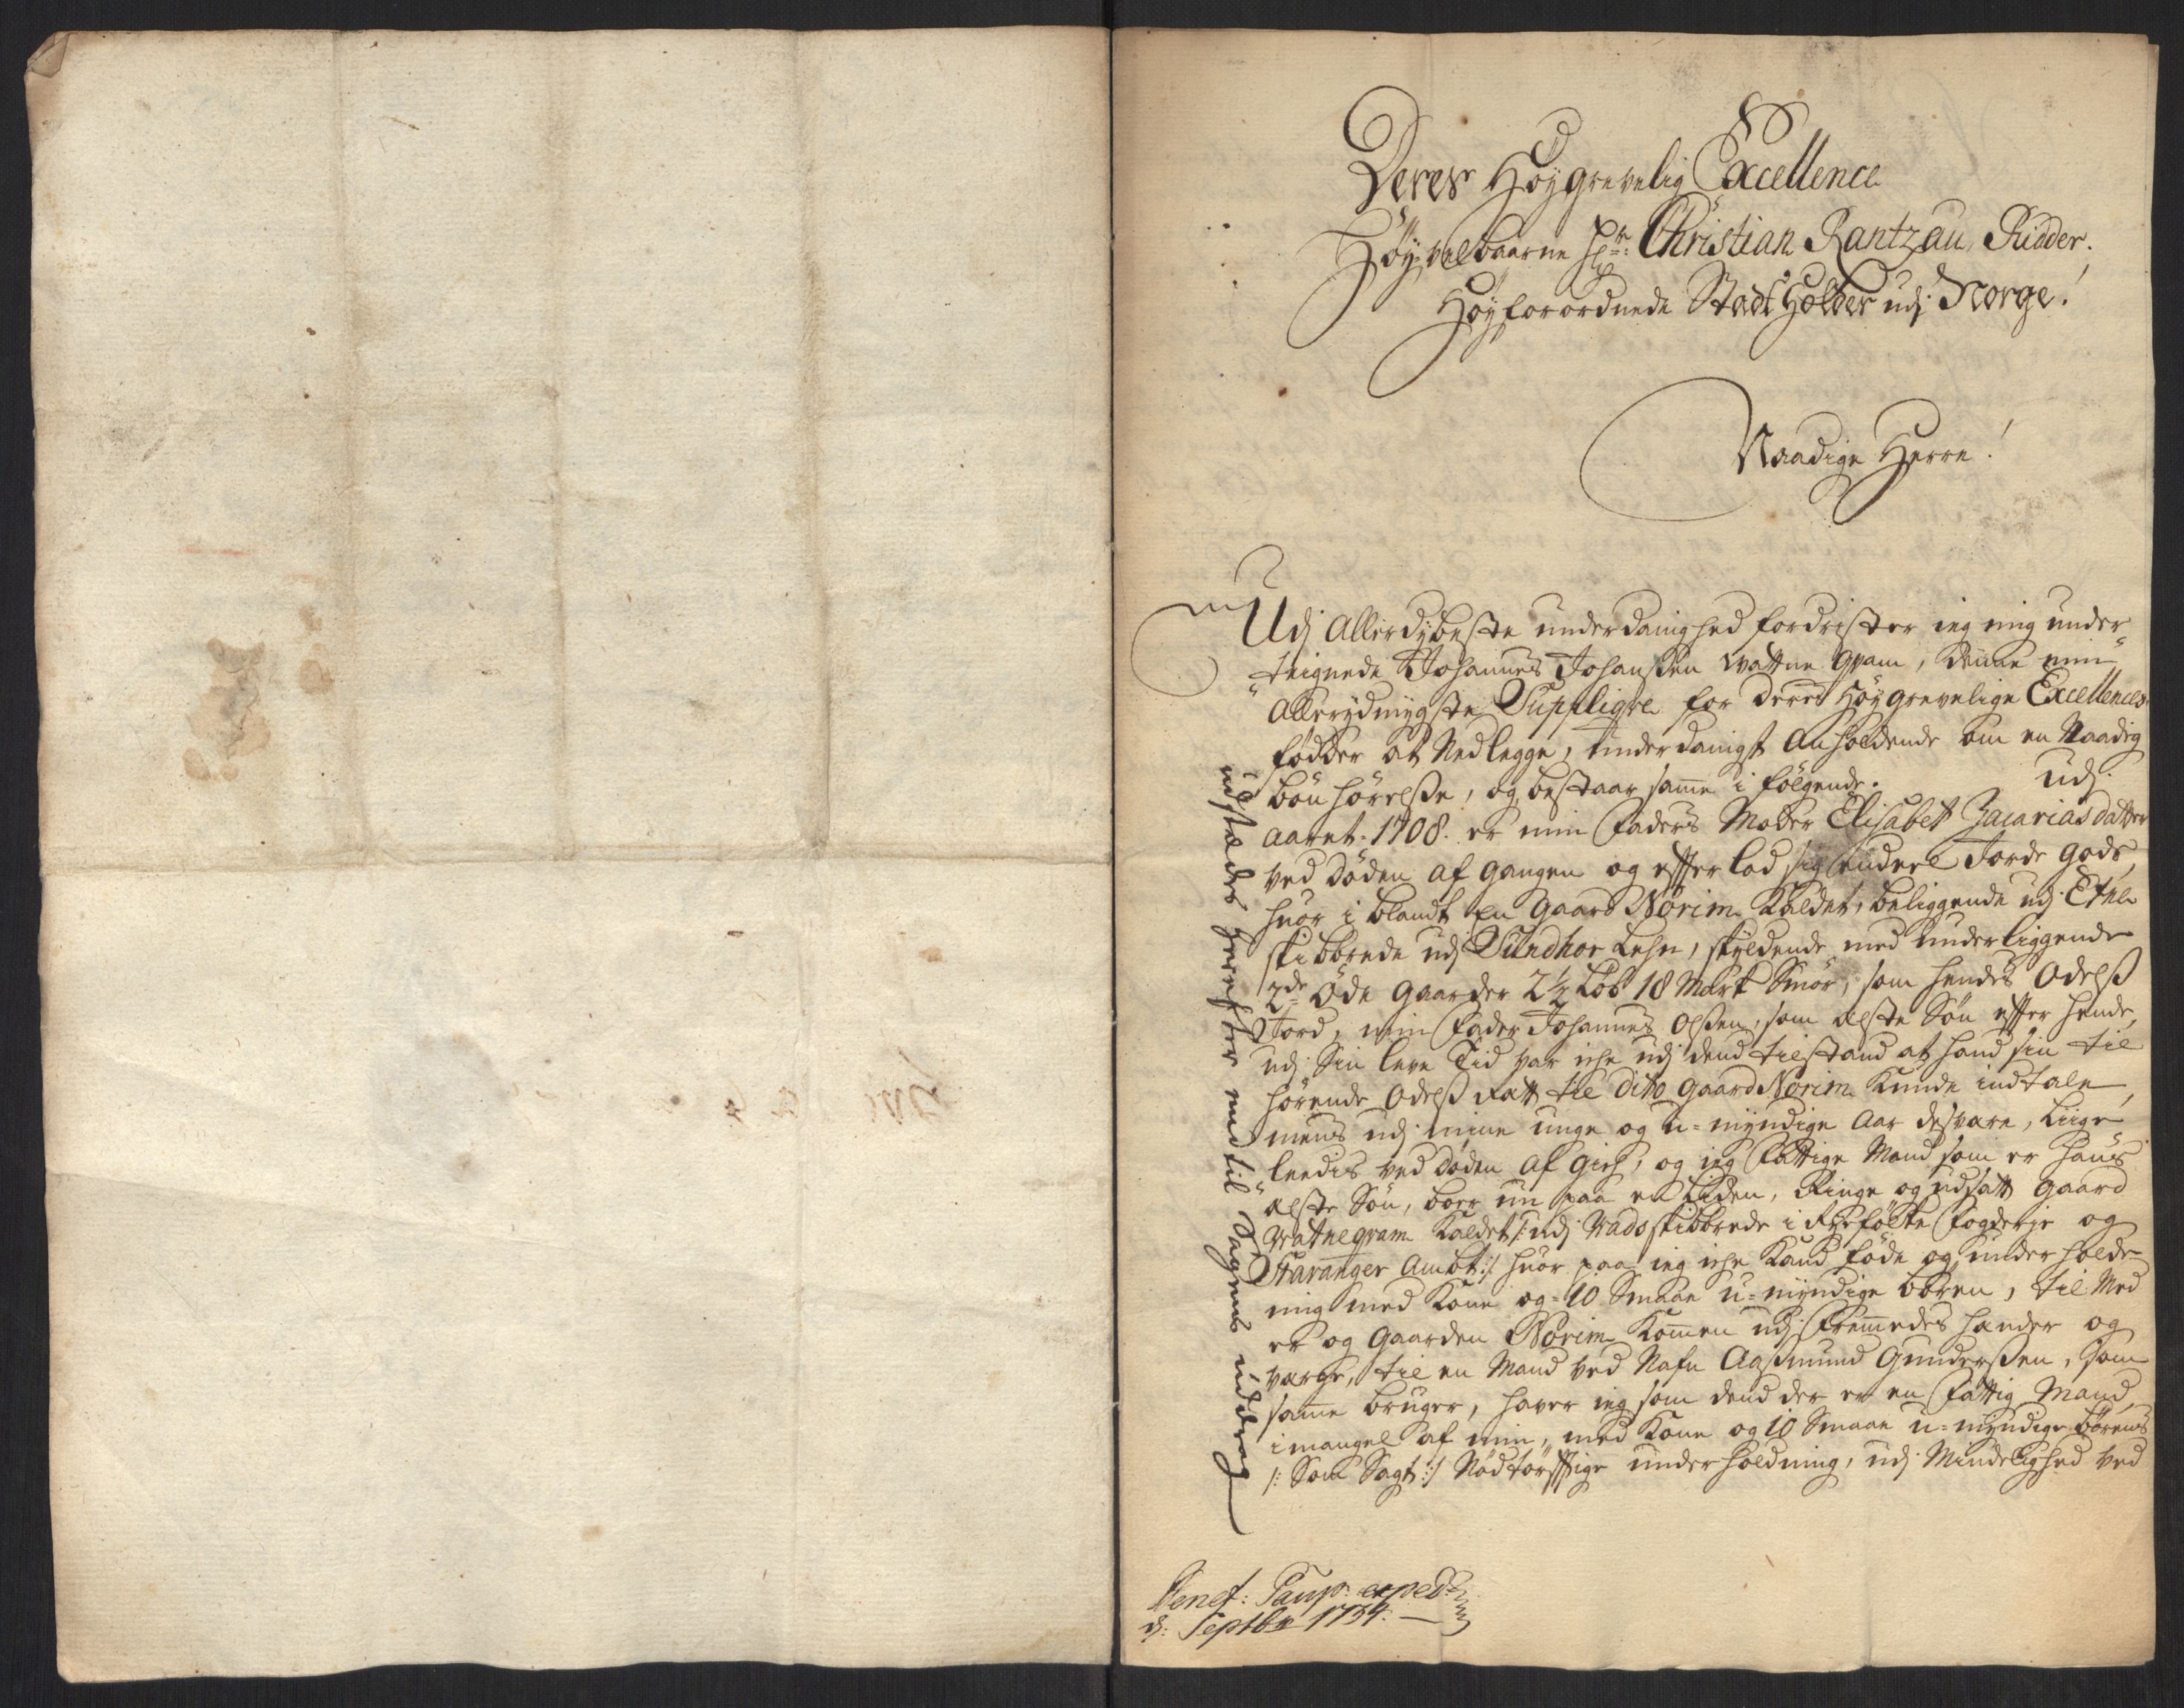 Deres Høygrevelig Excellence
Høy-velbaarne Hr: Christian Rantzau, Ridder.
Høyforordnede Stadt Holder udj Norge!
Naadige Herre!
Udj Allerdybeste underdanighed fordrister ieg mig under-
teignede Johannes Johanßen Wattne Qvam, denne min
Allerydmygste Suppliqve for deres Høygrevelige Excellences
fødder at Nedlegge, Underdanigst Anholdende om en Naadig
bønhørelße, og bestaar samme i følgende. Udj
Aaret 1708. er min Faders Moder Elisabet Zacariasdatter
ved døden af gangen og effterlod sig endeel Jorde gods,
huor i blandt En Gaard Norim Kaldet, beliggende udj Etnle
skibbrede udj Sundhor Lehn, skyldende med underliggende
2de Øde Gaarder 2½ Løb 18 Mark Smør, som hendes Odelß
Jord, min Fader Johannes Olßen, som elste Søn effter hende,
udj Sin leve Tid var iche udj dend tilstand at hand sin til
hørende Odelß Rætt til dito Gaard Norim Kunde indtale,
mens udj mine unge og u-myndige Aar desvære, Liige
leedis ved døden af gich, og ieg Fattige Mand som er hans
elste Søn, boer nu paa en Liden, Ringe og udsatt Gaard
Watneqvam Kaldet /: udj Wads skibbrede i Ryefølke Fogderje og
Stavanger Ambt :/ huor paa ieg iche Kand føde og underholde
mig med Kone og 10 Smaae u-myndige børen, til Med
er og Gaarden Norim Kommen udj Fremmedes hænder og
værge, til en Mand ved Nafn Aaßmund Gunderßen, som
samme bruger, haver ieg som dend der er en Fattig Mand,
i mangel af min, med Kone og 10 Smaae u-myndige børens
/: Som Sagt :/ Nødtørfftige underholdning, udj Mindelighed ved
udstædes herefter indtil Sagens uddrag
Benef: Paup: exped:
d: Septbr 1734.